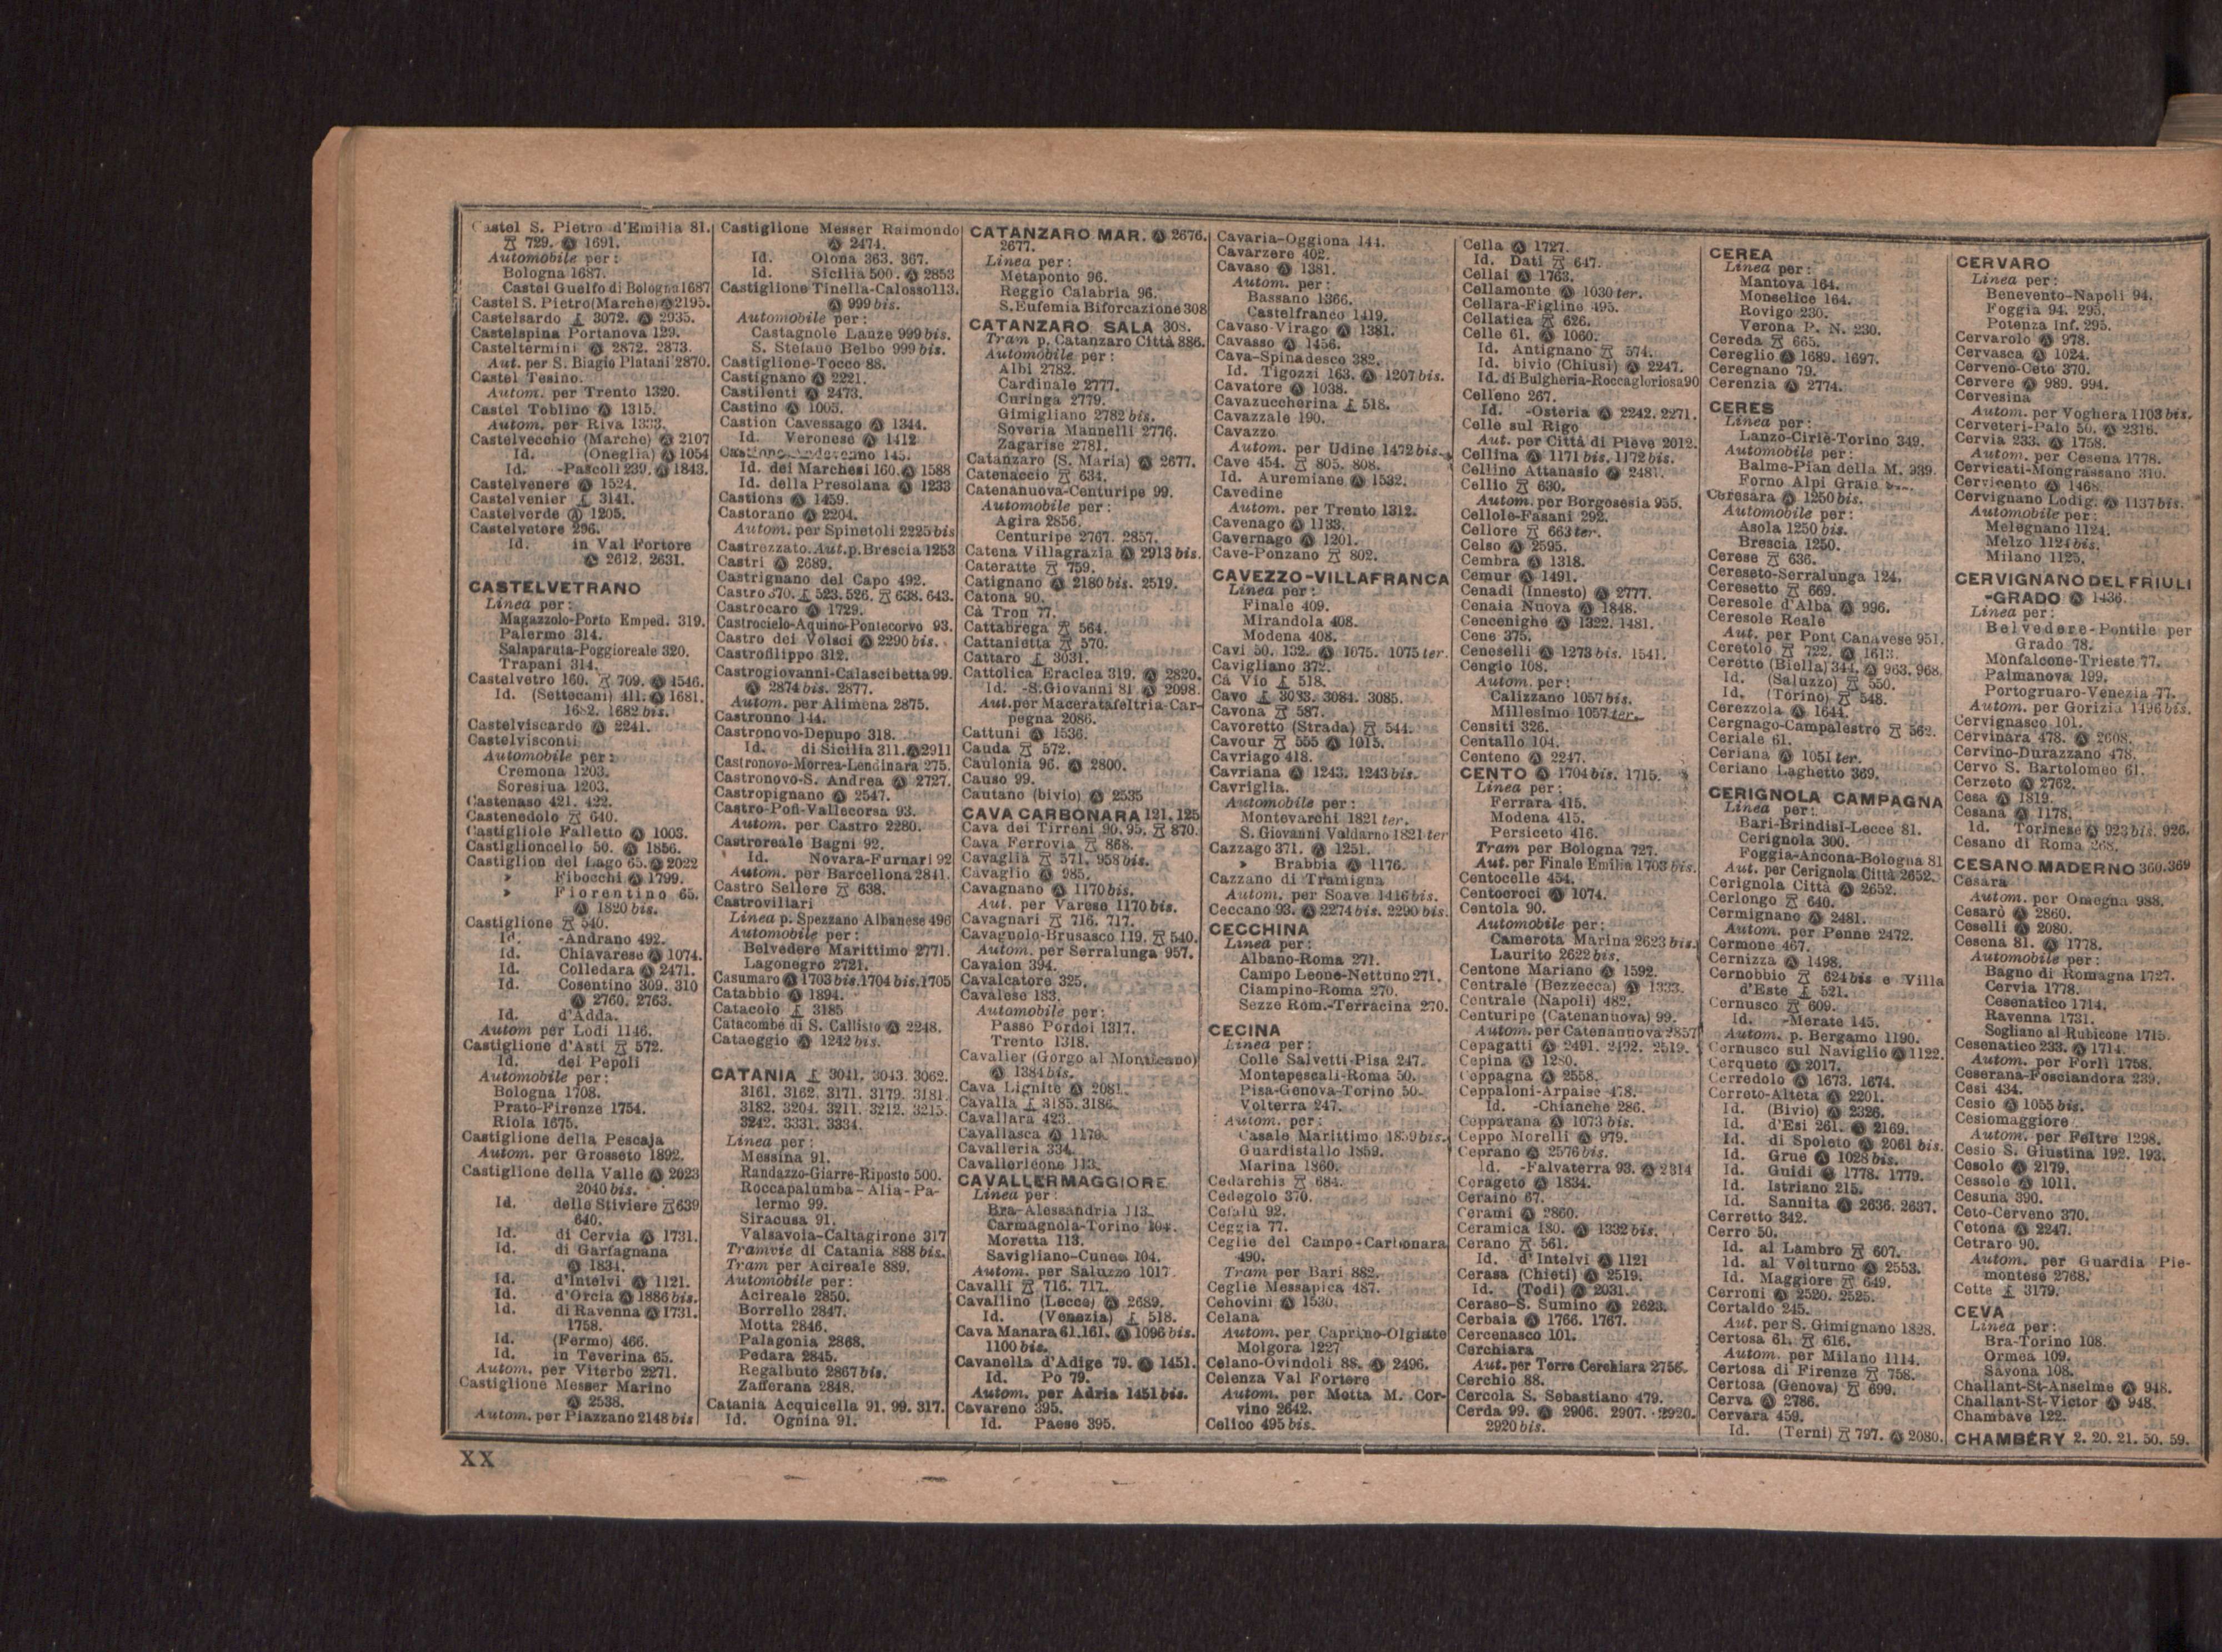 Castel S. Pietro d'Emilia 81.
729. 1691.
Automobile per:
Bologna 1687.
Castel Guelfo di Bologna 1687
Castel S. Pietro (Marche) 2195.
Castelsardo 3072. 2935.
Castelspina Portanova 129.
Casteltermini 2872. 2873.
Aut. per S. Biagio Platani 2870.
Castel Tesino.
Autom. per Trento 1320.
Castel Toblino 1315.
Autom. per Riva 1333.
Castelvecchio (Marche) 2107
Id. (Oneglia) 1054
Id. -Pascoli 239. 1843.
Castelvenere 1524.
Castelvenier 3141.
Castelverde 1205.
Castelvetere 296.
Id. in Val Fortore
2612. 2631.
CASTELVETRANO
Linea per:
Magazzolo-Porto Emped. 319.
Palermo 314.
Salaparuta-Poggioreale 320.
Trapani 314.
Castelvetro 160. 709. 1546.
Id. (Settecani) 411. 1681.
1682. 1682 bis.
Castelviscardo 2241.
Castelvisconti
Automobile per:
Cremona 1203.
Soresina 1203.
Castenaso 421. 422.
Castenedolo 640.
Castigliole Falletto 1003.
Castiglioncello 50. 1856.
Castiglion del Lago 65. 2022
» Fibocchi 1799.
» Fiorentino 65.
1820 bis.
Castiglione 540.
Id. -Andrano 492.
Id. Chiavarese 1074.
Id. Colledara 2471.
Id. Cosentino 309. 310
2760. 2763.
Id. d'Adda.
Autom per Lodi 1146.
Castiglione d'Asti 572.
Id. dei Pepoli
Automobile per:
Bologna 1708.
Prato-Firenze 1754.
Riola 1675.
Castiglione della Pescaja
Autom. per Grosseto 1892.
Castiglione della Valle 2023
2040 bis.
Id. delle Stiviere 639
640.
Id. di Cervia 1731.
Id. di Garfagnana
1834.
Id. d'Intelvi 1121.
Id. d'Orcia 1886 bis.
Id. di Ravenna 1731.
1758.
Id. (Fermo) 466.
Id. in Teverina 65.
Autom. per Viterbo 2271.
Castiglione Messer Marino
2538.
Autom. per Piazzano 2148 bis
Castiglione Messer Raimondo
2474.
Id. Olona 363. 367.
Id. Sicilia 500. 2853
Castiglione Tinella-Calosso 113.
999 bis.
Automobile per:
Castagnole Lanze 999 bis.
S. Stefano Belbo 999 bis.
Castiglione-Tocco 88.
Castignano 2221.
Castilenti 2473.
Castino 1005.
Castion Cavessago 1344.
Id. Veronese 1412
145.
Id. dei Marchesi 160. 1588
Id. della Presolana 1233
Castions 1459.
Castorano 2204.
Autom. per Spinetoli 2225 bis
Castrezzato. Aut. p. Brescia 1253
Castri 2689.
Castrignano del Capo 492.
Castro 370. 523. 526. 638. 643.
Castrocaro 1729.
Castrocielo-Aquino-Pontecorvo 93.
Castro dei Volsci 2290 bis.
Castrofilippo 312.
Castrogiovanni-Calascibetta 99.
2874 bis. 2877.
Autom. per Alimena 2875.
Castronno 144.
Castronovo-Depupo 318.
Id. di Sicilia 311. 2911
Castronovo-Morrea-Lendinara 275.
Castronovo-S. Andrea 2727.
Castropignano 2547.
Castro-Pofi-Vallecorsa 93.
Autom. per Castro 2280.
Castroreale Bagni 92.
Id. Novara-Furnari 92
Autom. per Barcellona 2841.
Castro Sellere 638.
Castrovillari
Linea p. Spezzano Albanese 496
Automobile per:
Belvedere Marittimo 2771.
Lagonegro 2721.
Casumaro 1703 bis. 1704 bis. 1705
Catabbio 1894.
Catacolo 3185
Catacombe di S. Callisto 2248.
Cataeggio 1242 bis.
CATANIA 3041. 3043. 3062.
3161. 3162. 3171. 3179. 3181.
3182. 3204. 3211. 3212. 3215.
3242. 3331. 3334.
Linea per:
Messina 91.
Randazzo-Giarre-Riposto 500.
Roccapalumba-Alia-Pa-
lermo 99.
Siracusa 91.
Valsavoia-Caltagirone 317
Tramvie di Catania 888 bis.
Tram per Acireale 889.
Automobile per:
Acireale 2850.
Borrello 2847.
Motta 2846.
Palagonia 2868.
Pedara 2845.
Regalbuto 2867 bis.
Zafferana 2848.
Catania Acquicella 91. 99. 317.
Id. Ognina 91.
CATANZARO MAR. 2676.
2677.
Linea per:
Metaponto 96.
Reggio Calabria 96.
S. Eufemia Biforcazione 308
CATANZARO SALA 308.
Tram p. Catanzaro Città 886.
Automobile per:
Albi 2782.
Cardinale 2777.
Curinga 2779.
Gimigliano 2782 bis.
Soveria Mannelli 2776.
Zagarise 2781.
Catanzaro (S. Maria) 2677.
Catenaccio 634.
Catenanuova-Centuripe 99.
Automobile per:
Agira 2856.
Centuripe 2767. 2857.
Catena Villagrazia 2913 bis.
Cateratte 759.
Catignano 2180 bis. 2519.
Catona 90.
Cà Tron 77.
Cattabrega 564.
Cattanietta 570.
Cattaro 3031.
Cattolica Eraclea 319. 2820.
Id. -S. Giovanni 81 2098.
Aut. per Maceratafeltria-Car-
pegna 2086.
Cattuni 1536.
Cauda 572.
Caulonia 96. 2800.
Causo 99.
Cautano (bivio) 2535
CAVA CARBONARA 121. 125
Cava dei Tirreni 90. 95. 870.
Cava Ferrovia 868.
Cavaglià 571. 958 bis.
Cavaglio 985.
Cavagnano 1170 bis.
Aut. per Varese 1170 bis.
Cavagnari 716. 717.
Cavagnolo-Brusasco 119. 540.
Autom. per Serralunga 957.
Cavaion 394.
Cavalcatore 325.
Cavalese 183.
Automobile per:
Passo Pordoi 1317.
Trento 1318.
Cavalier (Gorgo al Monticano)
1384 bis.
Cava Lignite 2081.
Cavalla 3185. 3186.
Cavallara 423.
Cavallasca 1179.
Cavalleria 334.
Cavallerleone 113.
CAVALLERMAGGIORE
Linea per:
Bra-Alessandria 113.
Carmagnola-Torino 104.
Moretta 113.
Savigliano-Cuneo 104.
Autom. per Saluzzo 1017
Cavalli 716. 717.
Cavallino (Lecce) 2689.
Id. (Venezia) 518.
Cava Manara 61. 161. 1096 bis.
1100 bis.
Cavanella d'Adige 79. 1451.
Id. Po 79.
Autom. per Adria 1451 bis.
Cavareno 395.
Id. Paese 395.
Cavaria-Oggiona 144.
Cavarzere 402.
Cavaso 1381.
Autom. per:
Bassano 1366.
Castelfranco 1419.
Cavaso Virago 1381.
Cavasso 1456.
Cava-Spinadesco 382.
Id. Tigozzi 163. 1207 bis.
Cavatore 1038.
Cavazuccherina 518.
Cavazzale 190.
Cavazzo
Autom. per Udine 1472 bis.
Cave 454. 805. 808.
Id. Auremiane 1532.
Cavedine
Autom. per Trento 1312.
Cavenago 1133.
Cavernago 1201.
Cave-Ponzano 802.
CAVEZZO-VILLAFRANCA
Linea per:
Finale 409.
Mirandola 408.
Modena 408.
Cavi 50. 132. 1075. 1075 ter.
Cavigliano 372.
Cà Vio 518.
Cavo 3033. 3084. 3085.
Cavona 587.
Cavoretto (Strada) 544.
Cavour 555 1015.
Cavriago 418.
Cavriana 1243. 1243 bis.
Cavriglia.
Automobile per:
Montevarchi 1821 ter.
S. Giovanni Valdarno 1821 ter
Cazzago 371. 1251.
» Brabbia 1176.
Cazzano di Tramigna
Autom. per Soave 1416 bis.
Ceccano 93. 2274 bis. 2290 bis.
CECCHINA
Linea per:
Albano-Roma 271.
Campo Leone-Nettuno 271.
Ciampino-Roma 270.
Sezze Rom.-Terracina 270.
CECINA
Linea per:
Colle Salvetti-Pisa 247.
Montepescali-Roma 50.
Pisa-Genova-Torino 50.
Volterra 247.
Autom. per:
Casale Marittimo 1859 bis.
Guardistallo 1859.
Marina 1860.
Cedarchis 684.
Cedegolo 370.
Cefalù 92.
Ceggia 77.
Ceglie del Campo-Carbonara
490.
Tram per Bari 882.
Ceglie Messapica 487.
Cehovini 1530.
Celana
Autom. per Caprino-Olgiate
Molgora 1227
Celano-Ovindoli 88. 2496.
Celenza Val Fortore
Autom. per Motta M. Cor-
vino 2642.
Celico 495 bis.
Cella 1727.
Id. Dati 647.
Cellai 1763.
Cellamonte 1030 ter.
Cellara-Figline 495.
Cellatica 626.
Celle 61. 1060.
Id. Antignano 574.
Id. bivio (Chiusi) 2247.
Id. di Bulgheria-Roccagloriosa 90
Celleno 267.
Id. -Osteria 2242. 2271.
Celle sul Rigo
Aut. per Città di Pieve 2012.
Cellina 1171 bis. 1172 bis.
Cellino Attanasio 2481.
Cellio 630.
Autom. per Borgosesia 955.
Cellole-Fasani 292.
Cellore 663 ter.
Celso 2595.
Cembra 1318.
Cemur 1491.
Cenadi (Innesto) 2777.
Cenaia Nuova 1848.
Cencenighe 1322. 1481.
Cene 375.
Ceneselli 1273 bis. 1541.
Cengio 108.
Autom. per:
Calizzano 1057 bis.
Millesimo 1057 ter.
Censiti 326.
Centallo 104.
Centeno 2247.
CENTO 1704 bis. 1715.
Linea per:
Ferrara 415.
Modena 415.
Persiceto 416.
Tram per Bologna 727.
Aut. per Finale Emilia 1703 bis.
Centocelle 454.
Centocroci 1074.
Centola 90.
Automobile per:
Camerota Marina 2623 bis.
Laurito 2622 bis.
Centone Mariano 1592.
Centrale (Bezzecca) 1333.
Centrale (Napoli) 482.
Centuripe (Catenanuova) 99.
Autom. per Catenanuova 2857
Cepagatti 2491. 2492. 2519.
Cepina 1280.
Ceppagna 2558.
Ceppaloni-Arpaise 478.
Id. -Chianche 286.
Cepparana 1073 bis.
Ceppo Morelli 979.
Ceprano 2576 bis.
Id. -Falvaterra 93. 2314
Cerageto 1834.
Ceraino 67.
Cerami 2860.
Ceramica 180. 1332 bis.
Cerano 561.
Id. d'Intelvi 1121
Cerasa (Chieti) 2519.
Id. (Todi) 2031.
Ceraso-S. Sumino 2623.
Cerbaia 1766. 1767.
Cercenasco 101.
Cerchiara
Aut. per Torre Cerchiara 2756.
Cerchio 88.
Cercola S. Sebastiano 479.
Cerda 99. 2906. 2907. 2920.
2920 bis.
CEREA
Linea per:
Mantova 164.
Monselice 164.
Rovigo 230.
Verona P. N. 230.
Cereda 665.
Cereglio 1689. 1697.
Ceregnano 79.
Cerenzia 2774.
CERES
Linea per:
Lanzo-Ciriè-Torino 349.
Automobile per:
Balme-Pian della M. 939.
Forno Alpi Graie
Ceresara 1250 bis.
Automobile per:
Asola 1250 bis.
Brescia 1250.
Cerese 636.
Cereseto-Serralunga 124.
Ceresetto 669.
Ceresole d'Alba 996.
Ceresole Reale
Aut. per Pont Canavese 951.
Ceretolo 722. 1613.
Ceretto (Biella) 344. 963. 968.
Id. (Saluzzo) 550.
Id. (Torino) 548.
Cerezzola 1644.
Cergnago-Campalestro 562.
Ceriale 61.
Ceriana 1051 ter.
Ceriano Laghetto 369.
CERIGNOLA CAMPAGNA
Linea per:
Bari-Brindisi-Lecce 81.
Cerignola 300.
Foggia-Ancona-Bologna 81
Aut. per Cerignola Città 2652.
Cerignola Città 2652.
Cerlongo 640.
Cermignano 2481.
Autom. per Penne 2472.
Cermone 467.
Cernizza 1498.
Cernobbio 624 bis e Villa
d'Este 521.
Cernusco 609.
Id. -Merate 145.
Autom. p. Bergamo 1190.
Cernusco sul Naviglio 1122.
Cerqueto 2017.
Cerredolo 1673. 1674.
Cerreto-Alteta 2201.
Id. (Bivio) 2326.
Id. d'Esi 261. 2169.
Id. di Spoleto 2061 bis.
Id. Grue 1028 bis.
Id. Guidi 1778. 1779.
Id. Istriano 215.
Id. Sannita 2636. 2637.
Cerretto 342.
Cerro 50.
Id. al Lambro 607.
Id. al Volturno 2553.
Id. Maggiore 649.
Cerroni 2520. 2525.
Certaldo 245.
Aut. per S. Gimignano 1828.
Certosa 61. 616.
Autom. per Milano 1114.
Certosa di Firenze 758.
Certosa (Genova) 699.
Cerva 2786.
Cervara 459.
Id. (Terni) 797. 2080.
CERVARO
Linea per:
Benevento-Napoli 94.
Foggia 94. 295.
Potenza Inf. 295.
Cervarolo 978.
Cervasca 1024.
Cerveno-Ceto 370.
Cervere 989. 994.
Cervesina
Autom. per Voghera 1103 bis.
Cerveteri-Palo 50. 2316.
Cervia 233. 1758.
Autom. per Cesena 1778.
Cervicati-Mongrassano 310.
Cervicento 1468.
Cervignano Lodig. 1137 bis.
Automobile per:
Melegnano 1124.
Melzo 1124 bis.
Milano 1125.
CERVIGNANO DEL FRIULI
-GRADO 1436.
Linea per:
Belvedere-Pontile per
Grado 78.
Monfalcone-Trieste 77.
Palmanova 199.
Portogruaro-Venezia 77.
Autom. per Gorizia 1496 bis.
Cervignasco 101.
Cervinara 478. 2608.
Cervino-Durazzano 478.
Cervo S. Bartolomeo 61.
Cerzeto 2762.
Cesa 1819.
Cesana 1178.
Id. Torinese 923 bis. 926.
Cesano di Roma 268.
CESANO MADERNO 360. 369
Cesara
Autom. per Omegna 988.
Cesarò 2860.
Ceselli 2080.
Cesena 81. 1778.
Automobile per:
Bagno di Romagna 1727.
Cervia 1778.
Cesenatico 1714.
Ravenna 1731.
Sogliano al Rubicone 1715.
Cesenatico 233. 1714.
Autom. per Forlì 1758.
Ceserana-Fosciandora 239.
Cesi 434.
Cesio 1055 bis.
Cesiomaggiore
Autom. per Feltre 1298.
Cesio S. Giustina 192. 193.
Cesolo 2179.
Cessole 1011.
Cesuna 390.
Ceto-Cerveno 370.
Cetona 2247.
Cetraro 90.
Autom. per Guardia Pie-
montese 2768.
Cette 3179.
CEVA
Linea per:
Bra-Torino 108.
Ormea 109.
Savona 108.
Challant-St-Anselme 948.
Challant-St-Victor 948.
Chambave 122.
CHAMBÉRY 2. 20. 21. 50. 59.
XX